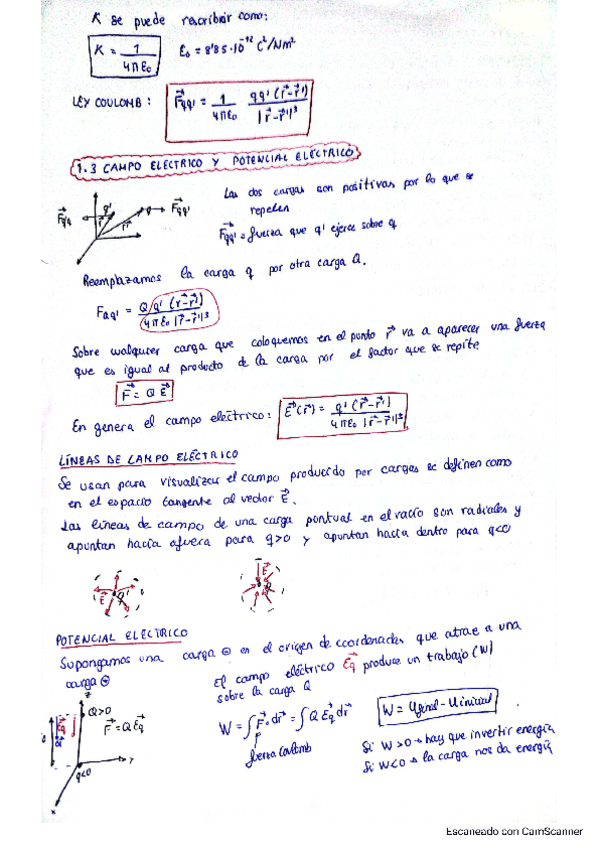 K se puede rescribir como:
K = 1/4πε₀   ε₀ = 8'85·10⁻¹² C²/Nm²
LEY COULOMB: F⃗qq' = 1/4πε₀ qq'(r⃗-r⃗')/|r⃗-r⃗'|³
1.3 CAMPO ELECTRICO Y POTENCIAL ELÉCTRICO
Las dos cargas son positivas por lo que se
repelen
F⃗q'q q' q F⃗qq'
r⃗' r⃗
F⃗qq' = fuerza que q' ejerce sobre q
Reemplazamos la carga q por otra carga Q.
F_Qq' = Q q'(r⃗-r⃗')/4πε₀|r⃗-r⃗'|³
Sobre cualquier carga que coloquemos en el punto r⃗ va a aparecer una fuerza
que es igual al producto de la carga por el factor que se repite
F⃗ = Q E⃗
En genera el campo eléctrico: E⃗(r⃗) = q'(r⃗-r⃗')/4πε₀|r⃗-r⃗'|³
LÍNEAS DE CAMPO ELÉCTRICO
Se usan para visualizar el campo producido por cargas se definen como
en el espacio tangente al vector E⃗.
Las líneas de campo de una carga puntual en el vacío son radiales y
apuntan hacia afuera para q>0 y apuntan hacia dentro para q<0
E⃗ q' E⃗
POTENCIAL ELÉCTRICO
Supongamos una carga ⊖ en el origen de coordenadas que atrae a una
carga ⊕
El campo eléctrico E⃗q produce un trabajo (W)
sobre la carga Q
z
Q>0
E⃗q
F⃗ = Q E⃗q
q<0
y
x
W = ∫F⃗·dr⃗ = ∫Q E⃗q dr⃗
fuerza Coulomb
W = Ufinal - Uinicial
Si W>0 → hay que invertir energía
Si W<0 → la carga nos da energía
Escaneado con CamScanner